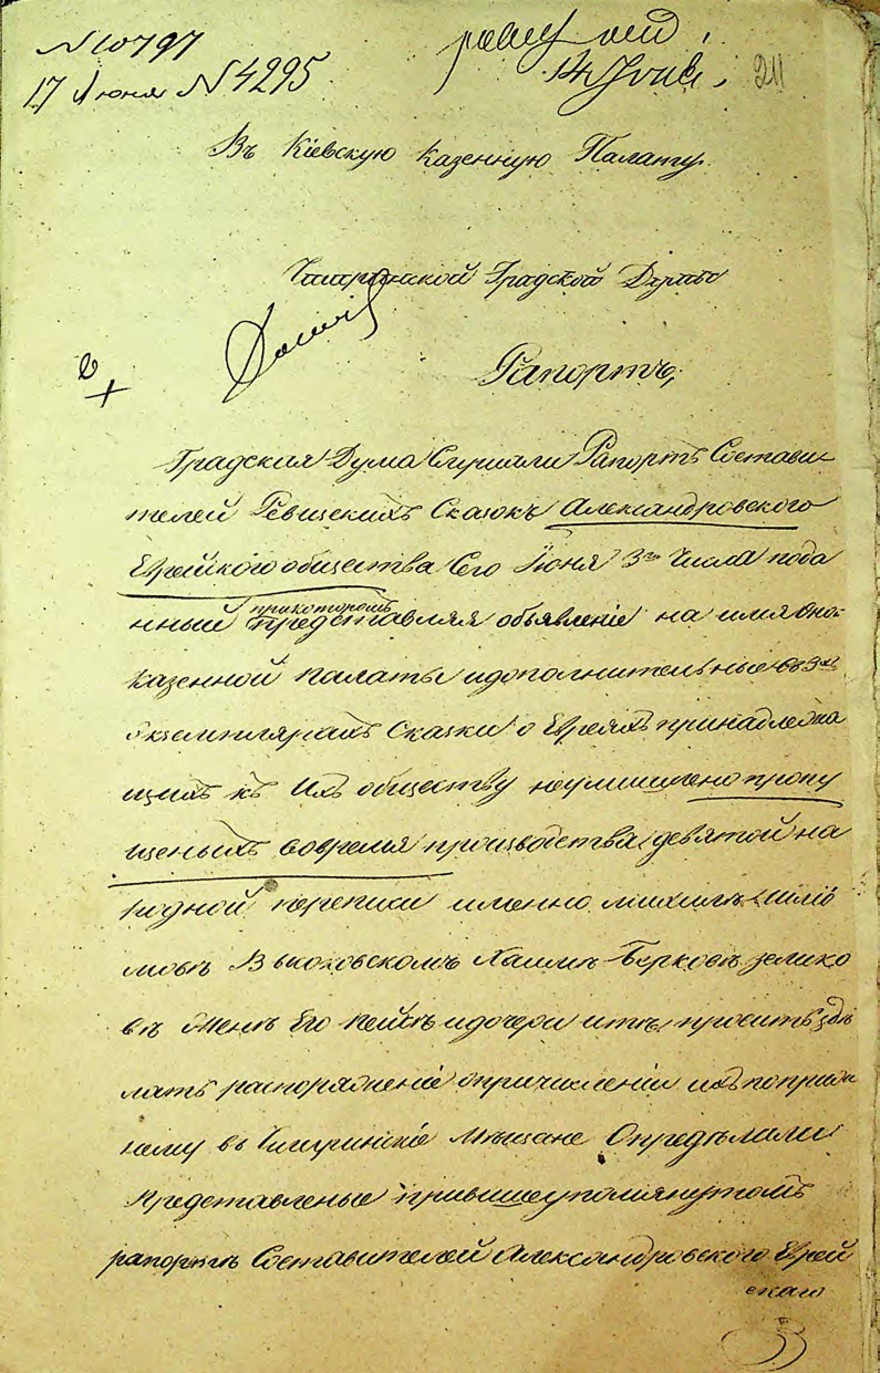 N 10797
17 Июня N 4295
14 Июня 211
Въ Кіевскую Казенную Палату.
Чигиринской Градской Думы
Рапортъ,
Градская Дума Слушали Рапортъ Состави-
телей Ревискихъ Сказокъ Александровского
Еврейского общества Сего Іюня 3го Числа пода
нный прикоторомъ представляя объявленіе на имя оной
казенной палаты идополнительные в 3хъ
экземплярахъ Сказки о Евреяхъ принадлежа
щихъ къ Ихъ обществу неумишлено пропу
щеныхъ вовремя произвотства девятой на
родной переписи именно
Высоковскомъ Хаимъ Берковъ Зелико
въ женъ Его Пейсъ идочери просить здѣ
лать распоряженіе опричисленіи ихъ попреж
нему въ Чигиринскіе Мещане Определили
Представленые привишеупомянутомъ
рапортѣ Составителей Александровского Еврей
скаго